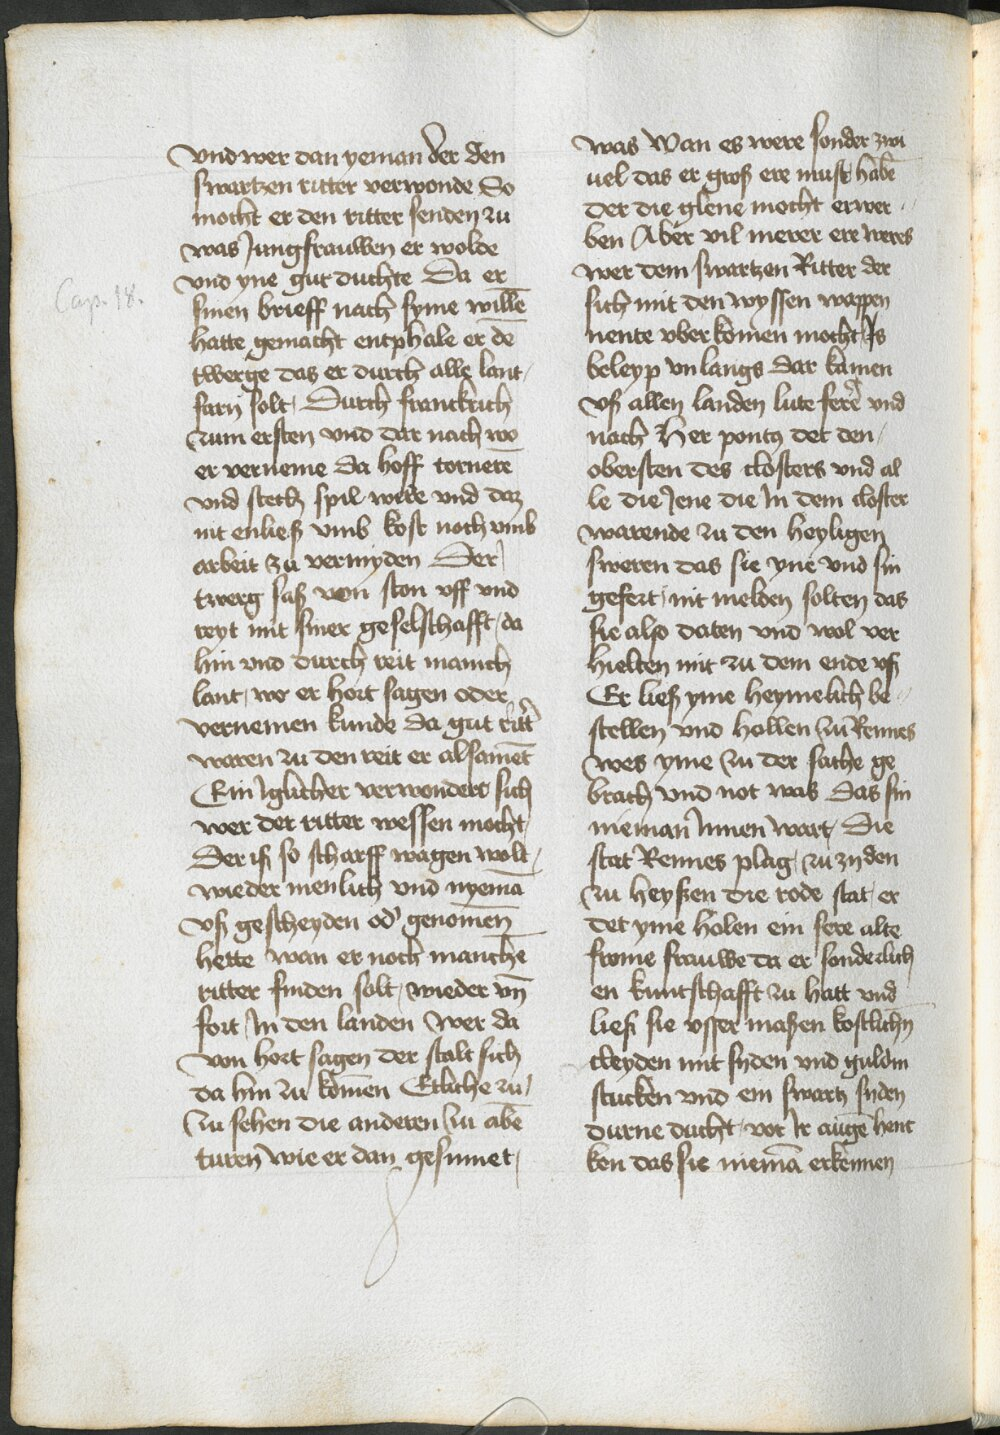 Vnd wer dan yeman der den
swartzen ritter verwonde So
mocht er den ritter senden zu
was Jungfrauwen er wolde
vnd yne gut duchte Da er
Cap. 18.
sinen brieff nach syme willē
hatte gemacht entphale er dē
twerge das er durch alle lant
farn solt Durch franckrich
zum ersten vnd dar nach wo
er verneme da hoff tornerē
vnd stech spil were vnd daz
nit enließ vmb kost noch vmb
arbeit zu vermyden Der
twerg saß von ston vff vnd
reyt mit siner geselschafft da
hin vnd durch reit manich
lant wo er hort sagen oder
vernemen kunde da gut rittr̄
waren zu den reit er alsamēt
Ein iglicher verwonders sich
wer der ritter wessen mocht
Der iß so scharff wagen wolt
wieder menlich vnd nyemā
vß gescheyden od' genomēn
hette wan er noch manchē
ritter finden solt wieder vn̄
fort In den landen Wer da
von hort sagen der stalt sich
da hin zu komen Etliche zu
zu sehen die anderen zu abē
turen wie er dan gesinnet
was Wan es were sonder zwi
uel das er groß ere must habē
der die glene mocht erwer
ben Aber vil merer ere weres
wer dem swartzen Ritter der
sich mit den wyssen wappen
nente vberkomen mocht Is
beleyp vnlangs dar kamen
vß allen landen lute ferē vnd
nach Her pontꝫ det den
obersten des closters vnd al
le die Jene die In dem closter
warende zu den heyligen
sweren das sie yne vnd sin
gefert nit melden solten das
sie also daten vnd wol ver
hielten mit zu dem ende vß
Er ließ yme heymelich be
stellen vnd hollen zu Rennes
wes yme zu der sache ge
brach vnd not was das sin
nieman Innen wart Die
stat Rennes plag zu zyden
zu heyßen die rode stat er
det yme holen ein sere alte
frome frauwe da er sonderlich
en kuntschafft zu hatt vnd
ließ sie vsser maßen kostlichn̄
cleyden mit syden vnd guldin
stucken vnd ein swartz syden
durne ducht vor Ir augē henc
ken das sie niemā erkennen